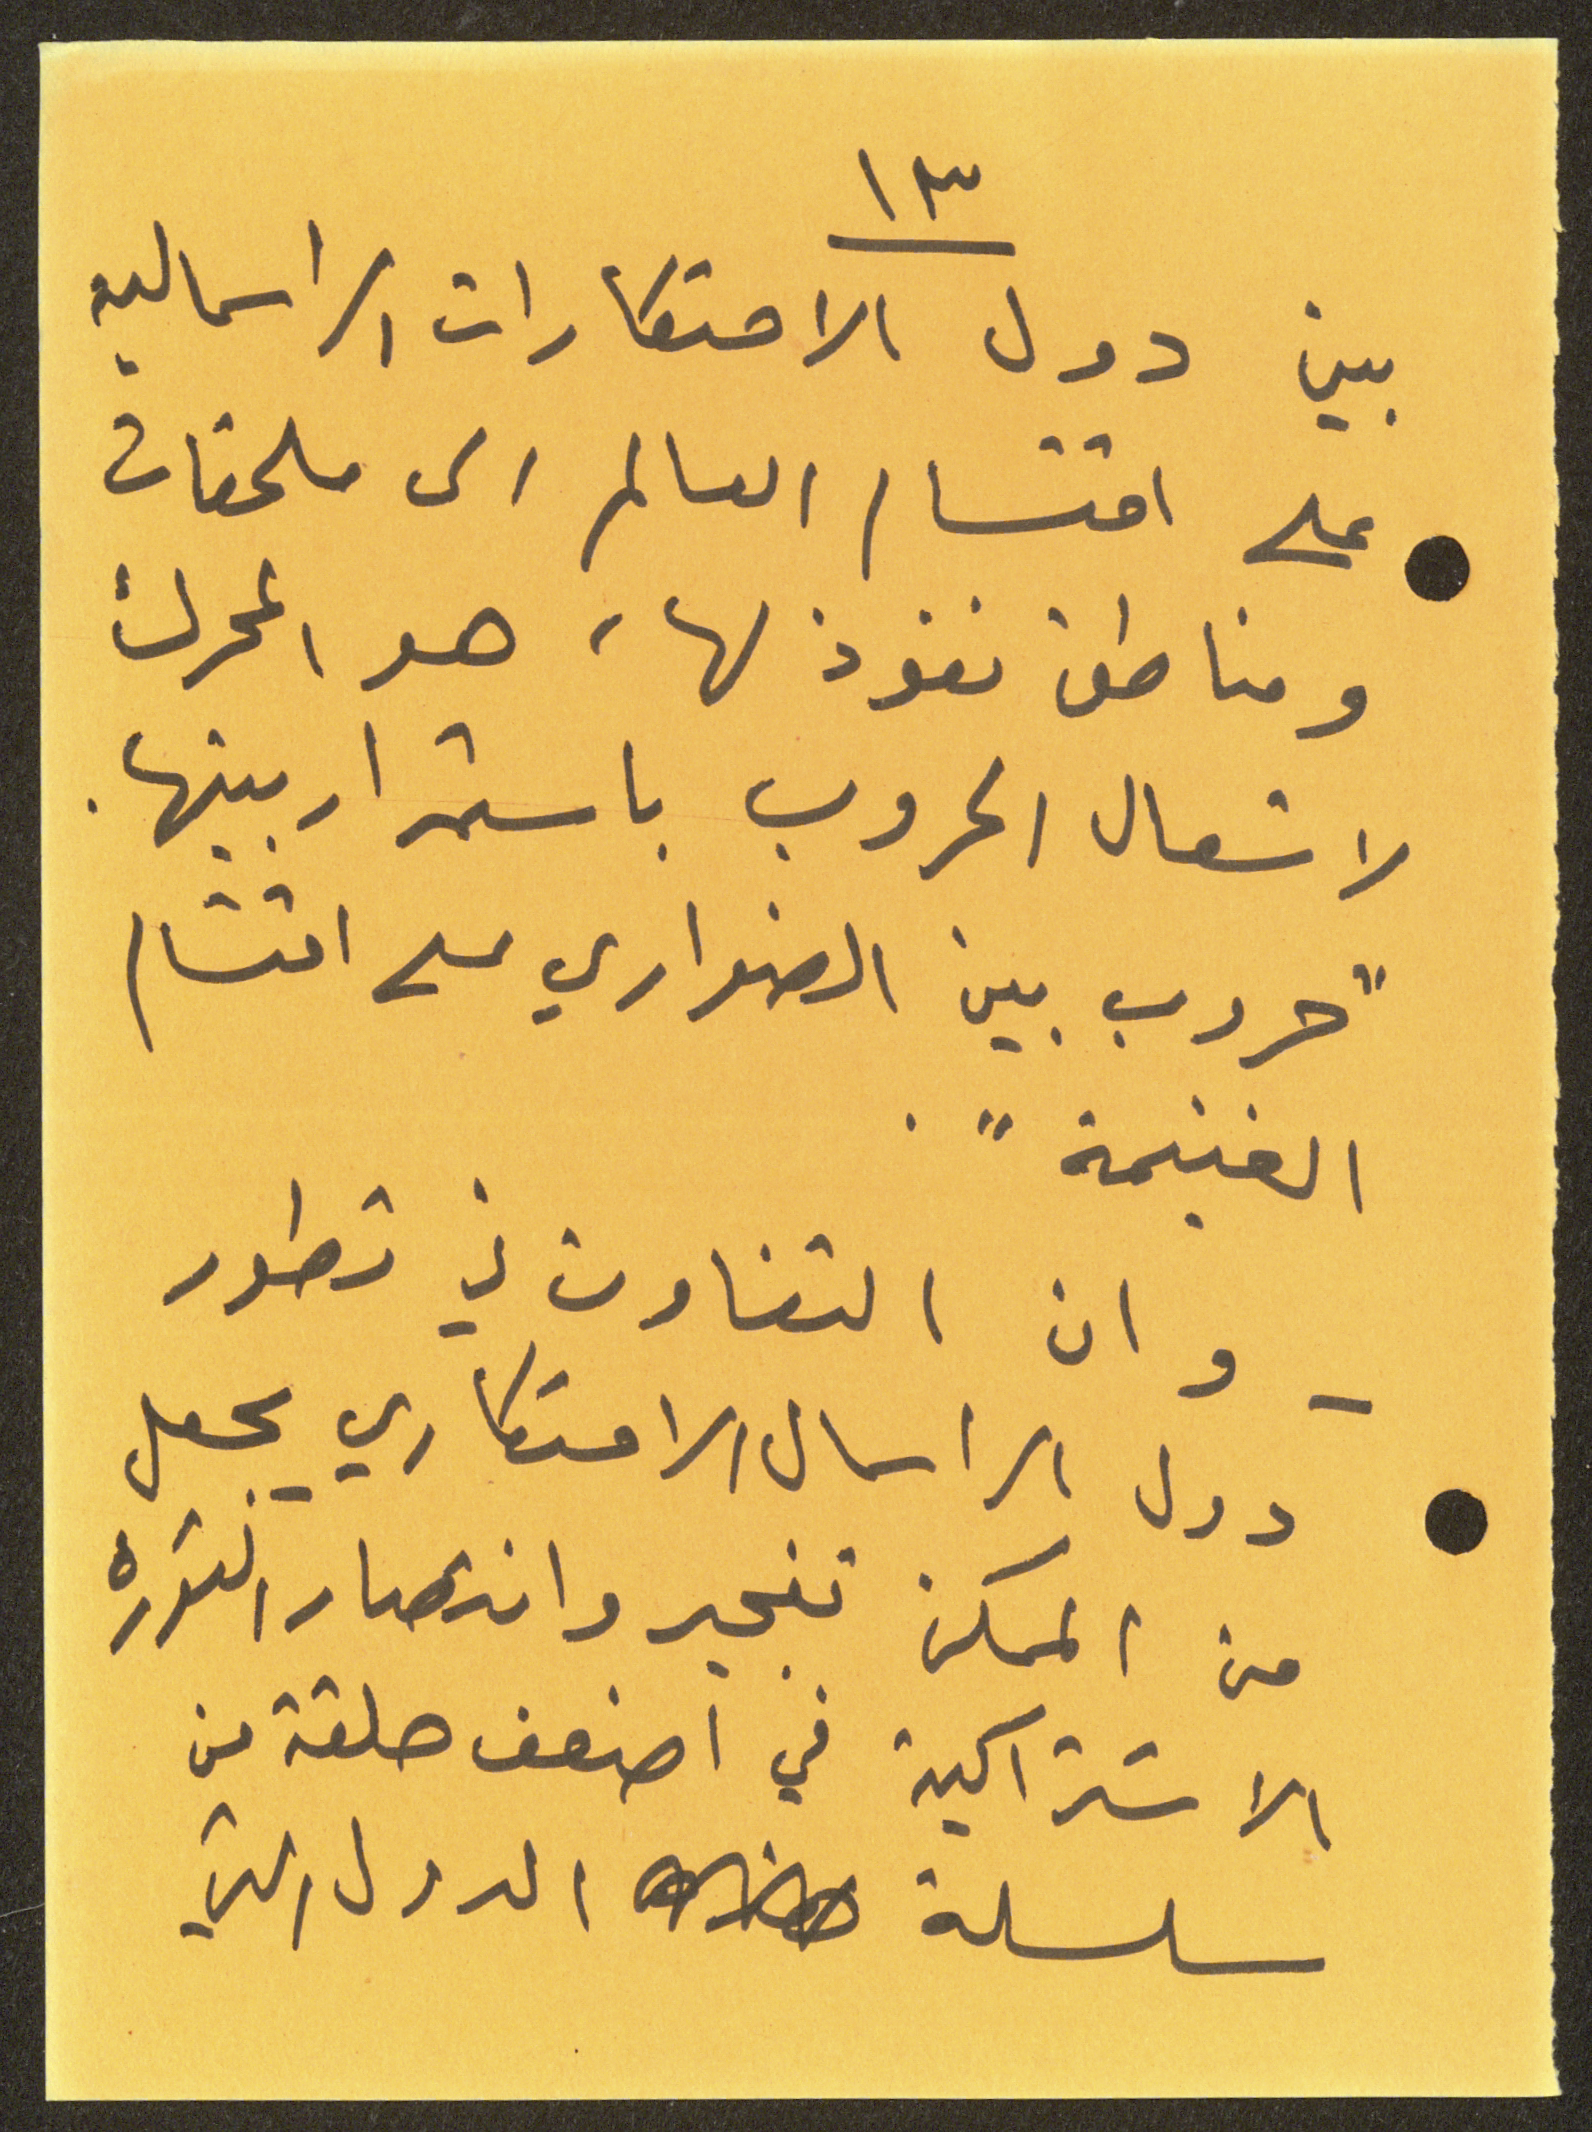 ١٣
بين دول الاحتكارات الراسماليه
على اقتسام العالم الى ملحقات
ومناطق نفوذ لها، هو المحرك
لاشعال الحروب باستمرار بينها.
"حروب بين الضواري على اقتسام
الغنيمة".
- وان التفاوت في تطور
دول الراسمال الاحتكاري يجعل
من الممكن تفجير وانتصار الثوره
الاشتراكية في اضعف حلقة من
سلسلة الدول التي